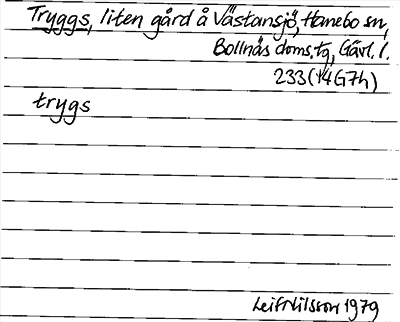 Tryggs, liten gård å Västansjö, Hanebo sn,
Bollnäs doms.tg, Gävl. l.
233 (14G7h)
trygs
Leif Nilsson 1979